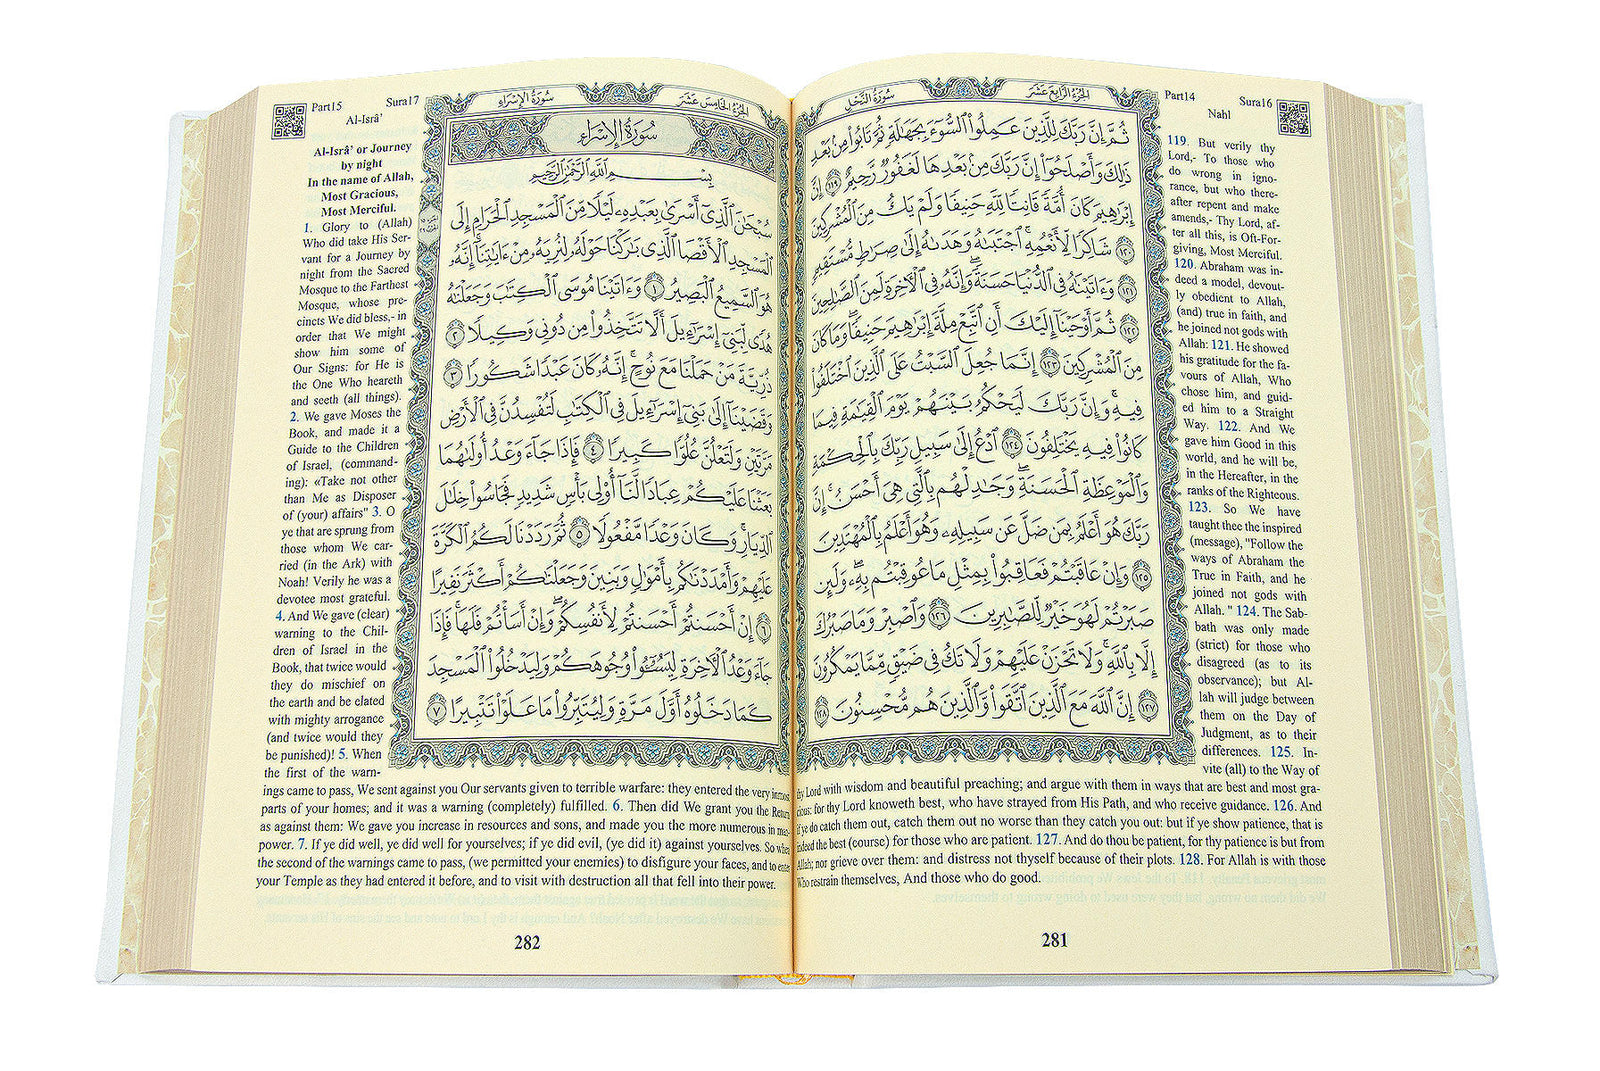 الجُزْءُ الرَّابِعُ عَشَرَ
سُورَةُ النَّحْلِ
ثُمَّ إِنَّ رَبَّكَ لِلَّذِينَ عَمِلُوا۟ ٱلسُّوٓءَ بِجَهَٰلَةٍ ثُمَّ تَابُوا۟ مِنۢ بَعْدِ
ذَٰلِكَ وَأَصْلَحُوٓا۟ إِنَّ رَبَّكَ مِنۢ بَعْدِهَا لَغَفُورٌ رَّحِيمٌ ١١٩ إِنَّ
إِبْرَٰهِيمَ كَانَ أُمَّةً قَانِتًا لِّلَّهِ حَنِيفًا وَلَمْ يَكُ مِنَ ٱلْمُشْرِكِينَ
١٢٠ شَاكِرًا لِّأَنْعُمِهِ ۚ ٱجْتَبَىٰهُ وَهَدَىٰهُ إِلَىٰ صِرَٰطٍ مُّسْتَقِيمٍ
١٢١ وَءَاتَيْنَٰهُ فِى ٱلدُّنْيَا حَسَنَةً ۖ وَإِنَّهُۥ فِى ٱلْءَاخِرَةِ لَمِنَ ٱلصَّٰلِحِينَ
١٢٢ ثُمَّ أَوْحَيْنَآ إِلَيْكَ أَنِ ٱتَّبِعْ مِلَّةَ إِبْرَٰهِيمَ حَنِيفًا ۖ وَمَا كَانَ
مِنَ ٱلْمُشْرِكِينَ ١٢٣ إِنَّمَا جُعِلَ ٱلسَّبْتُ عَلَى ٱلَّذِينَ ٱخْتَلَفُوا۟
فِيهِ ۚ وَإِنَّ رَبَّكَ لَيَحْكُمُ بَيْنَهُمْ يَوْمَ ٱلْقِيَٰمَةِ فِيمَا
كَانُوا۟ فِيهِ يَخْتَلِفُونَ ١٢٤ ٱدْعُ إِلَىٰ سَبِيلِ رَبِّكَ بِٱلْحِكْمَةِ
وَٱلْمَوْعِظَةِ ٱلْحَسَنَةِ ۖ وَجَٰدِلْهُم بِٱلَّتِى هِىَ أَحْسَنُ ۚ إِنَّ
رَبَّكَ هُوَ أَعْلَمُ بِمَن ضَلَّ عَن سَبِيلِهِۦ ۖ وَهُوَ أَعْلَمُ بِٱلْمُهْتَدِينَ
١٢٥ وَإِنْ عَاقَبْتُمْ فَعَاقِبُوا۟ بِمِثْلِ مَا عُوقِبْتُم بِهِۦ ۖ وَلَئِن
صَبَرْتُمْ لَهُوَ خَيْرٌ لِّلصَّٰبِرِينَ ١٢٦ وَٱصْبِرْ وَمَا صَبْرُكَ
إِلَّا بِٱللَّهِ ۚ وَلَا تَحْزَنْ عَلَيْهِمْ وَلَا تَكُ فِى ضَيْقٍ مِّمَّا يَمْكُرُونَ
١٢٧ إِنَّ ٱللَّهَ مَعَ ٱلَّذِينَ ٱتَّقَوا۟ وَّٱلَّذِينَ هُم مُّحْسِنُونَ ١٢٨
Part14 Sura16
Nahl
119. But verily thy
Lord,- To those who
do wrong in igno-
rance, but who there-
after repent and make
amends,- Thy Lord, af-
ter all this, is Oft-For-
giving, Most Merciful.
120. Abraham was in-
deed a model, devout-
ly obedient to Allah,
(and) true in faith, and
he joined not gods with
Allah: 121. He showed
his gratitude for the fa-
vours of Allah, Who
chose him, and guid-
ed him to a Straight
Way. 122. And We
gave him Good in this
world, and he will be,
in the Hereafter, in the
ranks of the Righteous.
123. So We have
taught thee the inspired
(message), "Follow the
ways of Abraham the
True in Faith, and he
joined not gods with
Allah. " 124. The Sab-
bath was only made
(strict) for those who
disagreed (as to its
observance); but Al-
lah will judge between
them on the Day of
Judgment, as to their
differences. 125. In-
vite (all) to the Way of
thy Lord with wisdom and beautiful preaching; and argue with them in ways that are best and most gra-
cious: for thy Lord knoweth best, who have strayed from His Path, and who receive guidance. 126. And
if ye do catch them out, catch them out no worse than they catch you out: but if ye show patience, that is
indeed the best (course) for those who are patient. 127. And do thou be patient, for thy patience is but from
Allah; nor grieve over them: and distress not thyself because of their plots. 128. For Allah is with those
Who restrain themselves, And those who do good.
281
الجُزْءُ الخَامِسَ عَشَرَ
سُورَةُ الإِسْرَاءِ
سُورَةُ الإِسْرَاءِ
بِسْمِ ٱللَّهِ ٱلرَّحْمَٰنِ ٱلرَّحِيمِ
سُبْحَٰنَ ٱلَّذِىٓ أَسْرَىٰ بِعَبْدِهِۦ لَيْلًا مِّنَ ٱلْمَسْجِدِ ٱلْحَرَامِ إِلَى
ٱلْمَسْجِدِ ٱلْأَقْصَا ٱلَّذِى بَٰرَكْنَا حَوْلَهُۥ لِنُرِيَهُۥ مِنْ ءَايَٰتِنَآ ۚ إِنَّهُۥ
هُوَ ٱلسَّمِيعُ ٱلْبَصِيرُ ١ وَءَاتَيْنَا مُوسَى ٱلْكِتَٰبَ وَجَعَلْنَٰهُ
هُدًى لِّبَنِىٓ إِسْرَٰٓءِيلَ أَلَّا تَتَّخِذُوا۟ مِن دُونِى وَكِيلًا ٢
ذُرِّيَّةَ مَنْ حَمَلْنَا مَعَ نُوحٍ ۚ إِنَّهُۥ كَانَ عَبْدًا شَكُورًا ٣
وَقَضَيْنَآ إِلَىٰ بَنِىٓ إِسْرَٰٓءِيلَ فِى ٱلْكِتَٰبِ لَتُفْسِدُنَّ فِى ٱلْأَرْضِ
مَرَّتَيْنِ وَلَتَعْلُنَّ عُلُوًّا كَبِيرًا ٤ فَإِذَا جَآءَ وَعْدُ أُولَىٰهُمَا
بَعَثْنَا عَلَيْكُمْ عِبَادًا لَّنَآ أُو۟لِى بَأْسٍ شَدِيدٍ فَجَاسُوا۟ خِلَٰلَ
ٱلدِّيَارِ ۚ وَكَانَ وَعْدًا مَّفْعُولًا ٥ ثُمَّ رَدَدْنَا لَكُمُ ٱلْكَرَّةَ
عَلَيْهِمْ وَأَمْدَدْنَٰكُم بِأَمْوَٰلٍ وَبَنِينَ وَجَعَلْنَٰكُمْ أَكْثَرَ نَفِيرًا
٦ إِنْ أَحْسَنتُمْ أَحْسَنتُمْ لِأَنفُسِكُمْ ۖ وَإِنْ أَسَأْتُمْ فَلَهَا ۚ فَإِذَا
جَآءَ وَعْدُ ٱلْءَاخِرَةِ لِيَسُـۥٓـُٔوا۟ وُجُوهَكُمْ وَلِيَدْخُلُوا۟ ٱلْمَسْجِدَ
كَمَا دَخَلُوهُ أَوَّلَ مَرَّةٍ وَلِيُتَبِّرُوا۟ مَا عَلَوْا۟ تَتْبِيرًا ٧
Part15 Sura17
Al-Isrâ’
Al-Isrâ’ or Journey
by night
In the name of Allah,
Most Gracious,
Most Merciful.
1. Glory to (Allah)
Who did take His Ser-
vant for a Journey by
night from the Sacred
Mosque to the Farthest
Mosque, whose pre-
cincts We did bless,- in
order that We might
show him some of
Our Signs: for He is
the One Who heareth
and seeth (all things).
2. We gave Moses the
Book, and made it a
Guide to the Children
of Israel, (command-
ing): «Take not other
than Me as Disposer
of (your) affairs" 3. O
ye that are sprung from
those whom We car-
ried (in the Ark) with
Noah! Verily he was a
devotee most grateful.
4. And We gave (clear)
warning to the Chil-
dren of Israel in the
Book, that twice would
they do mischief on
the earth and be elated
with mighty arrogance
(and twice would they
be punished)! 5. When
the first of the warn-
ings came to pass, We sent against you Our servants given to terrible warfare: they entered the very inmost
parts of your homes; and it was a warning (completely) fulfilled. 6. Then did We grant you the Return
as against them: We gave you increase in resources and sons, and made you the more numerous in man-
power. 7. If ye did well, ye did well for yourselves; if ye did evil, (ye did it) against yourselves. So when
the second of the warnings came to pass, (we permitted your enemies) to disfigure your faces, and to enter
your Temple as they had entered it before, and to visit with destruction all that fell into their power.
282